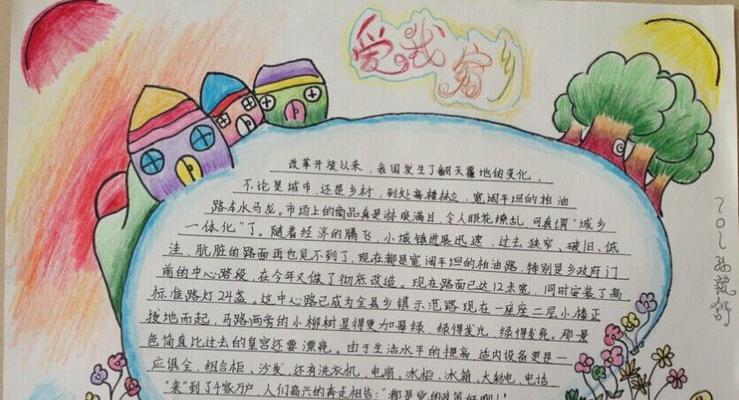 爱我家乡
改革开放以来，我国发生了翻天覆地的变化，
不论是城市，还是乡村，到处高楼林立，宽阔平坦的柏油
路车水马龙。市场上的商品真是琳琅满目，令人眼花缭乱，可真谓“城乡
一体化”了。随着经济的腾飞，小城镇进展迅速，过去狭窄、破旧、低
洼、肮脏的路面再也见不到了，现在都是宽阔平坦的柏油路，特别是乡政府门
前的中心路段，在今年又做了彻底改造。现在路面已达12米宽，同时安装了高
标准路灯24盏。这中心路已成为全县乡镇示范路现在一座座二层小楼正
拔地而起，马路两旁的小柳树显得更加翠绿，绿得发光，绿得发亮。那景
色简直比过去的皇宫还要漂亮。由于生活水平的提高，室内设备更是一
应俱全，组合柜、沙发、还有洗衣机、电扇、冰柜、冰箱、大彩电、电话
“来”到了千家万户，人们高兴的奔走相告：“都是党的政策好啊！
701